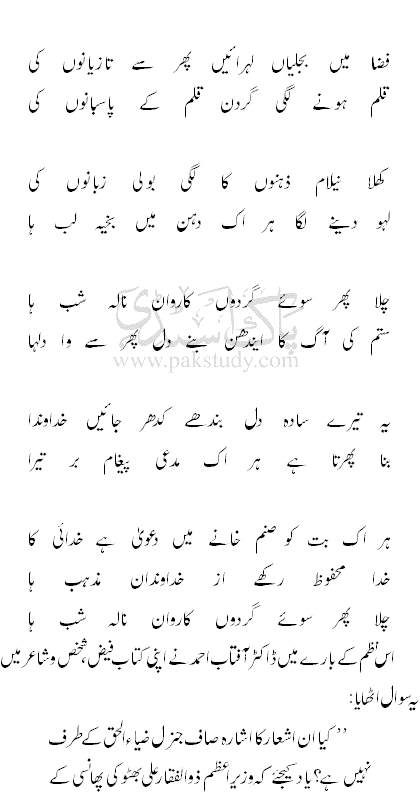 فضا میں بجلیاں لہرائیں پھر سے تازیانوں کی
قلم ہونے لگی گردن قلم کے پاسبانوں کی
کھلا نیلام ذہنوں کا لگی بولی زبانوں کی
لہو دینے لگا ہر اک دہن میں بخیہ لب ہا
چلا پھر سوئے گردوں کاروان نالہ شب ہا
پاک اسٹڈی
ستم کی آگ کا ایندھن بنے دل پھر سے وا دلہا
www.pakstudy.com
یہ تیرے سادہ دل بندھے کدھر جائیں خداوندا
بنا پھرتا ہے ہر اک مدعی پیغام بر تیرا
ہر اک بت کو صنم خانے میں دعویٰ ہے خدائی کا
خدا محفوظ رکھے از خداوندان مذہب ہا
چلا پھر سوئے گردوں کاروان نالہ شب ہا
اس نظم کے بارے میں ڈاکٹر آفتاب احمد نے اپنی کتاب فیض، شخص و شاعر میں
یہ سوال اٹھایا:
’’ کیا ان اشعار کا اشارہ صاف جنرل ضیاء الحق کے طرف
نہیں ہے؟ یاد کیجئے کہ وزیر اعظم ذوالفقار علی بھٹو کی پھانسی کے